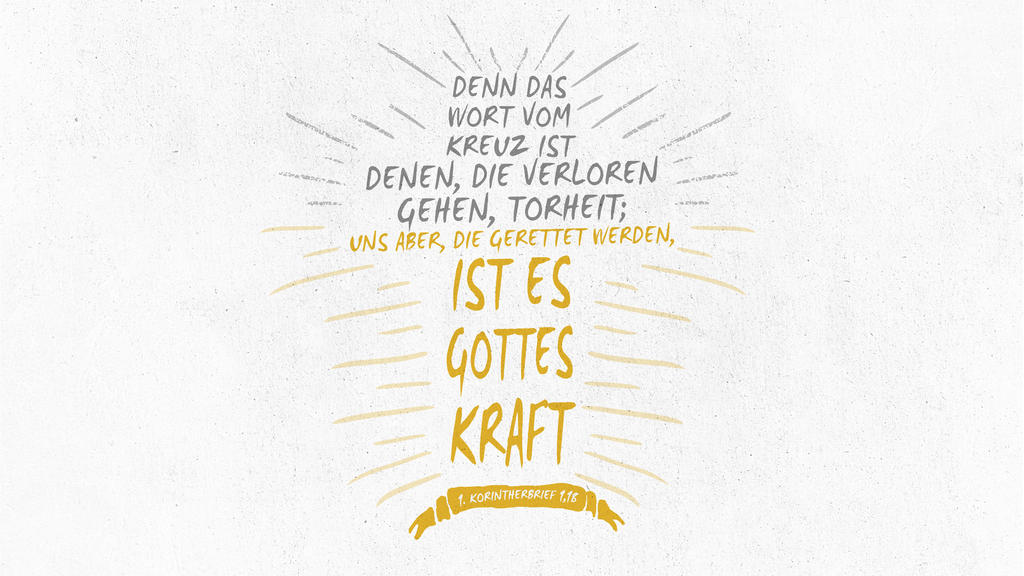 DENN DAS
WORT VOM
KREUZ IST
DENEN, DIE VERLOREN
GEHEN, TORHEIT;
UNS ABER, DIE GERETTET WERDEN,
IST ES
GOTTES
KRAFT
1. KORINTHERBRIEF 1,18